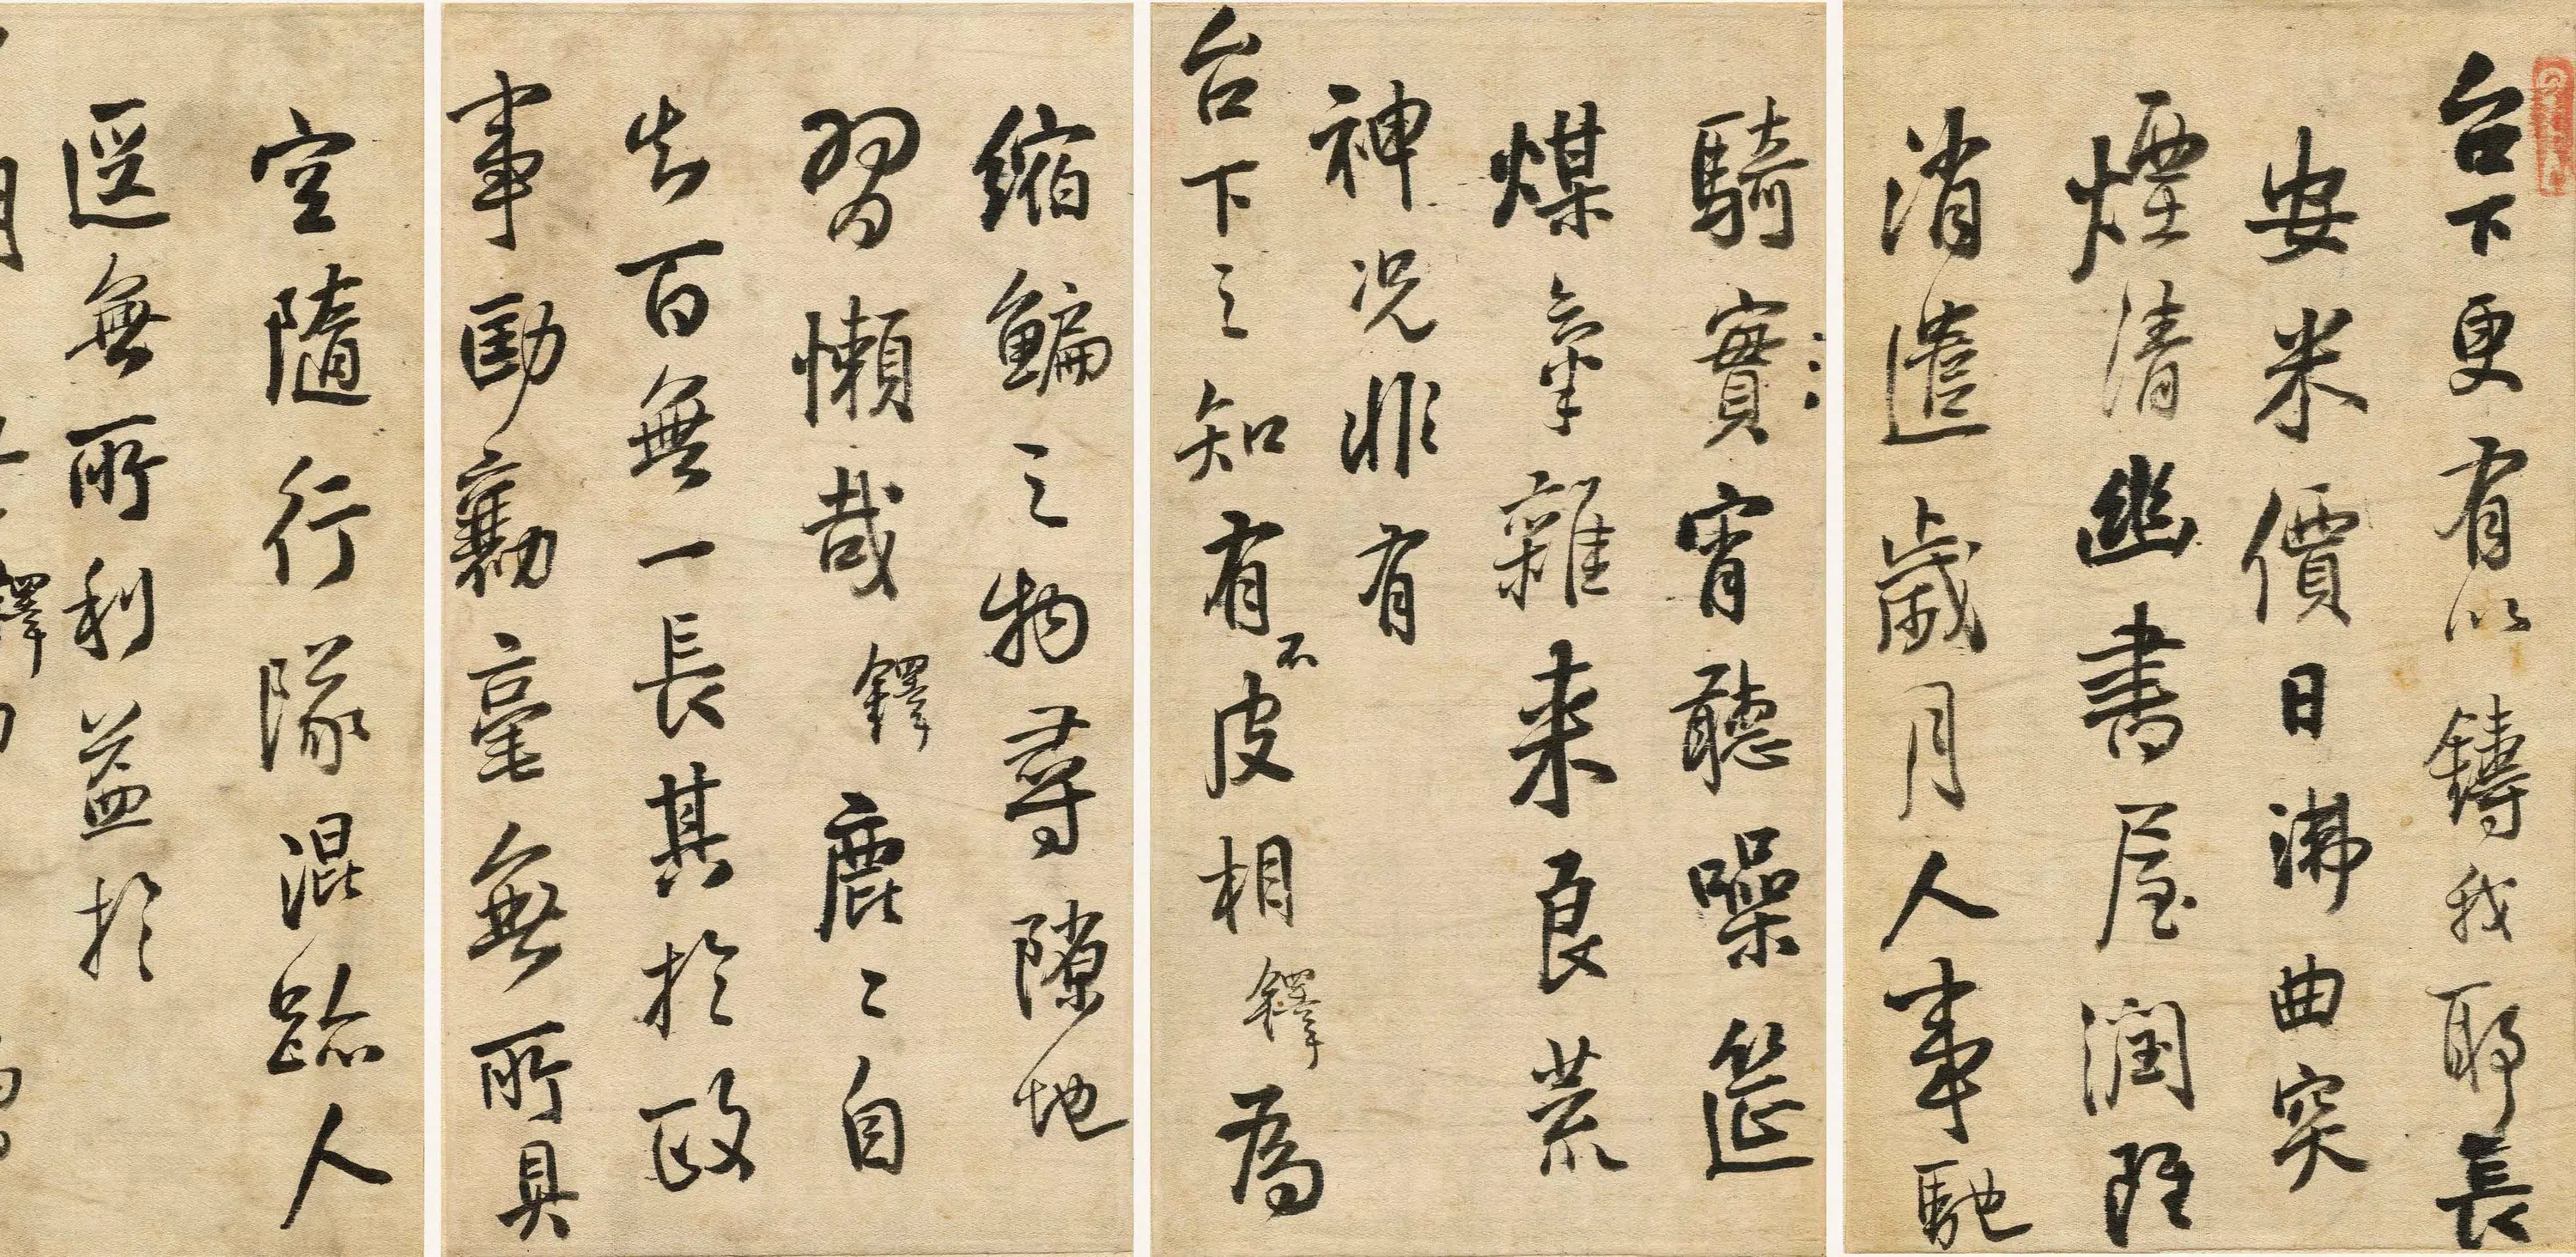 台下更有以鑄我耶長
安米價日沸曲突
煙清幽書屋潤既
消遣歲月人事馳
騎實宵聽噪筵
煤氣雜来良荒
神况非有
台下之知有不皮相鐸為
縮鯿之物尋隙地
習懶哉鐸鹿〻自
去百無一長其於政
事勷毫無所具
空隨行隊混跡人
逕無所利益於